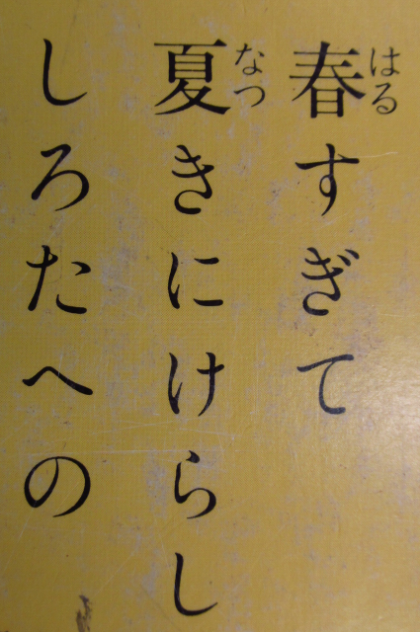 春すぎて
はる
夏きにけらし
なつ
しろたへの